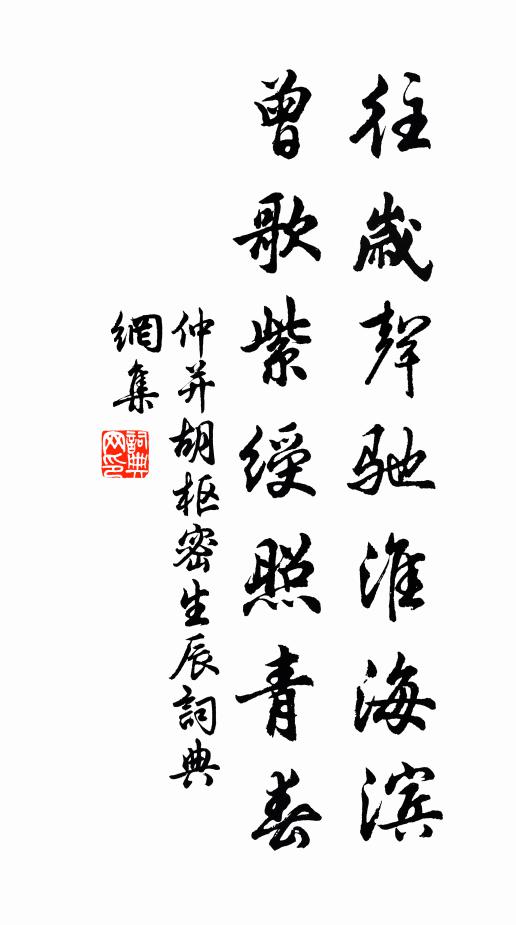 往歲聲馳淮海滨
曾歌紫綬照青春
仲并胡枢密生辰詞典
網集
詞典網印